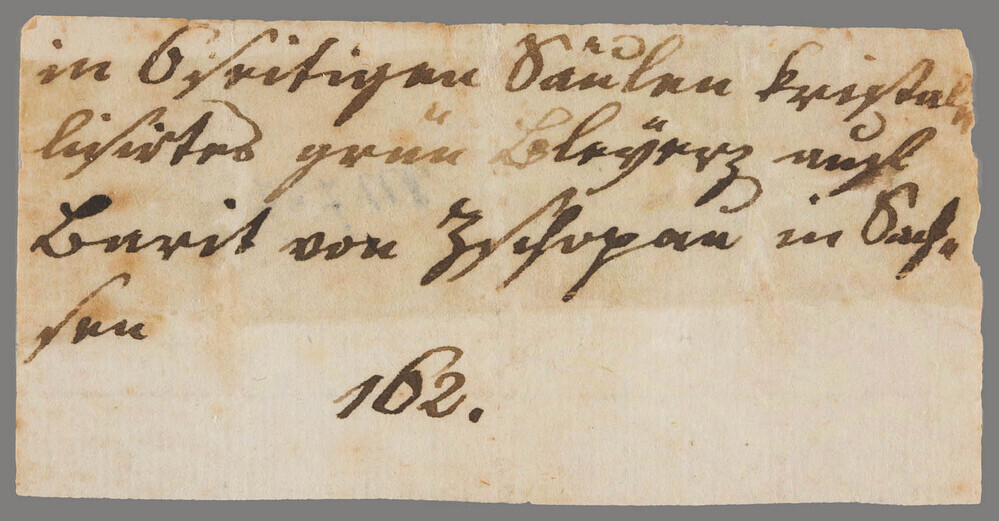 in 6seitigen Säulen kristal„
lisirtes grün Bleÿerz auf
Barit von Zschopau in Sach„
sen
162.